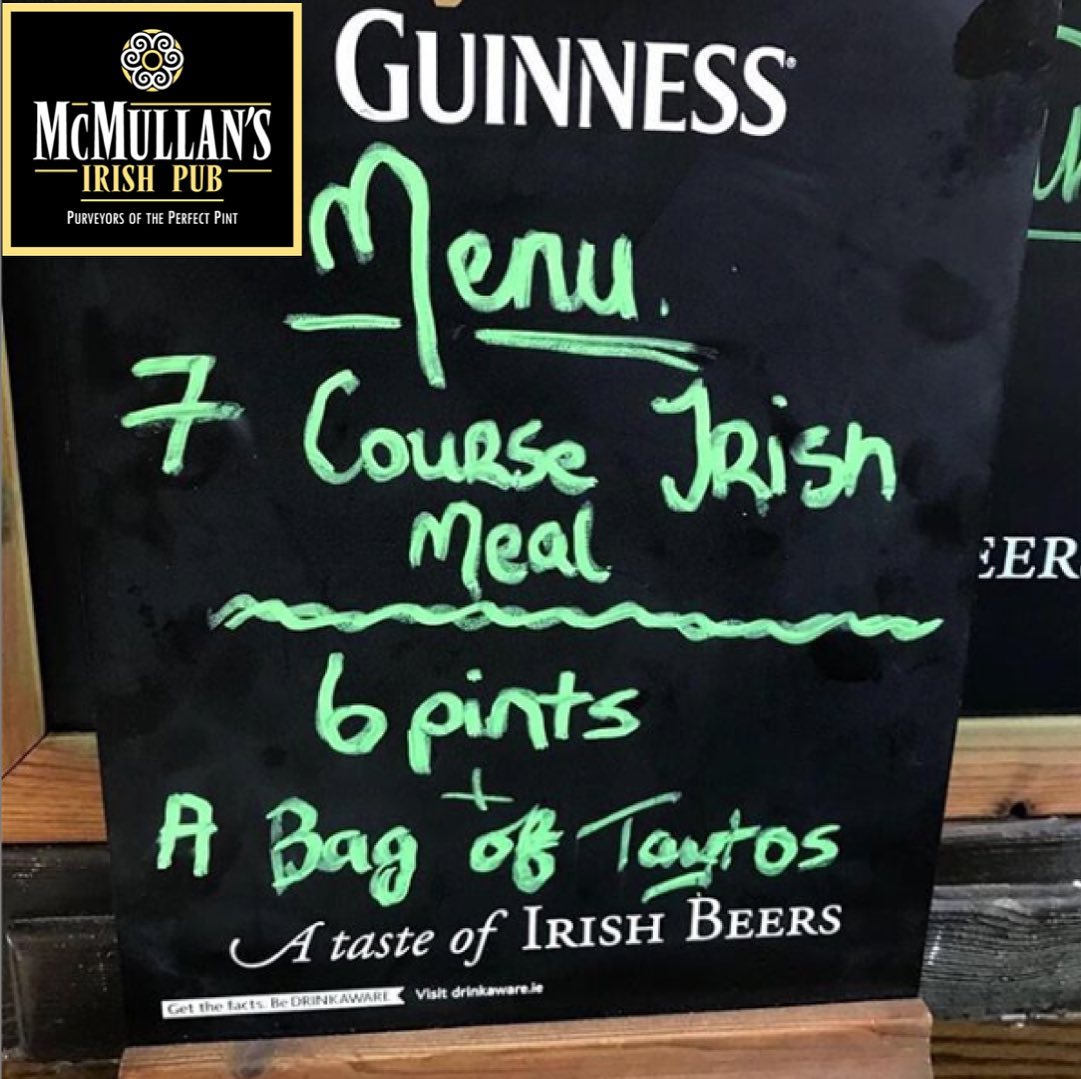 McMullan's
Irish Pub
Purveyors of the Perfect Pint
GUINNESS®
Menu.
7 Course Irish
Meal
6 pints
+
A Bag of Taytos
A taste of Irish Beers
Get the facts. Be DRINKAWARE Visit drinkaware.ie